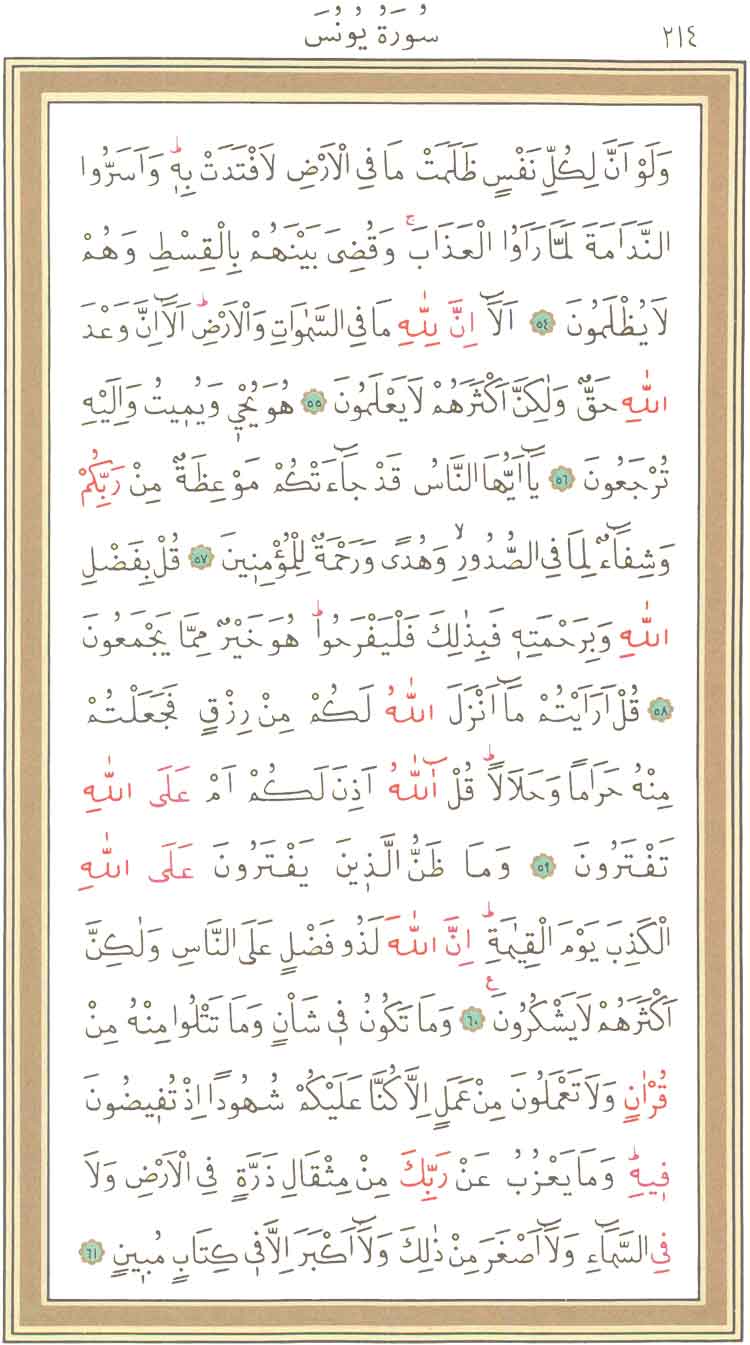 سُورَةُ يُونُسَ ٢١٤
وَلَوْ اَنَّ لِكُلِّ نَفْسٍ ظَلَمَتْ مَا فِي الْاَرْضِ لَافْتَدَتْ بِه۪ۜ وَاَسَرُّوا
النَّدَامَةَ لَمَّا رَاَوُا الْعَذَابَۚ وَقُضِيَ بَيْنَهُمْ بِالْقِسْطِ وَهُمْ
لَا يُظْلَمُونَ ﴿٥٤﴾ اَلَٓا اِنَّ لِلّٰهِ مَا فِي السَّمٰوَاتِ وَالْاَرْضِۜ اَلَٓا اِنَّ وَعْدَ
اللّٰهِ حَقٌّ وَلٰكِنَّ اَكْثَرَهُمْ لَا يَعْلَمُونَ ﴿٥٥﴾ هُوَ يُحْي۪ وَيُم۪يتُ وَاِلَيْهِ
تُرْجَعُونَ ﴿٥٦﴾ يَٓا اَيُّهَا النَّاسُ قَدْ جَٓاءَتْكُمْ مَوْعِظَةٌ مِنْ رَبِّكُمْ
وَشِفَٓاءٌ لِمَا فِي الصُّدُورِۙ وَهُدًى وَرَحْمَةٌ لِلْمُؤْمِن۪ينَ ﴿٥٧﴾ قُلْ بِفَضْلِ
اللّٰهِ وَبِرَحْمَتِه۪ فَبِذٰلِكَ فَلْيَفْرَحُواۜ هُوَ خَيْرٌ مِمَّا يَجْمَعُونَ
﴿٥٨﴾ قُلْ اَرَاَيْتُمْ مَٓا اَنْزَلَ اللّٰهُ لَكُمْ مِنْ رِزْقٍ فَجَعَلْتُمْ
مِنْهُ حَرَامًا وَحَلَالًاۜ قُلْ آٰللّٰهُ اَذِنَ لَكُمْ اَمْ عَلَى اللّٰهِ
تَفْتَرُونَ ﴿٥٩﴾ وَمَا ظَنُّ الَّذ۪ينَ يَفْتَرُونَ عَلَى اللّٰهِ
الْكَذِبَ يَوْمَ الْقِيٰمَةِۜ اِنَّ اللّٰهَ لَذُو فَضْلٍ عَلَى النَّاسِ وَلٰكِنَّ
اَكْثَرَهُمْ لَا يَشْكُرُونَ ع ﴿٦٠﴾ وَمَا تَكُونُ ف۪ي شَاْنٍ وَمَا تَتْلُوا مِنْهُ مِنْ
قُرْاٰنٍ وَلَا تَعْمَلُونَ مِنْ عَمَلٍ اِلَّا كُنَّا عَلَيْكُمْ شُهُودًا اِذْ تُف۪يضُونَ
ف۪يهِۜ وَمَا يَعْزُبُ عَنْ رَبِّكَ مِنْ مِثْقَالِ ذَرَّةٍ فِي الْاَرْضِ وَلَا
فِي السَّمَٓاءِ وَلَٓا اَصْغَرَ مِنْ ذٰلِكَ وَلَٓا اَكْبَرَ اِلَّا ف۪ي كِتَابٍ مُب۪ينٍ ﴿٦١﴾